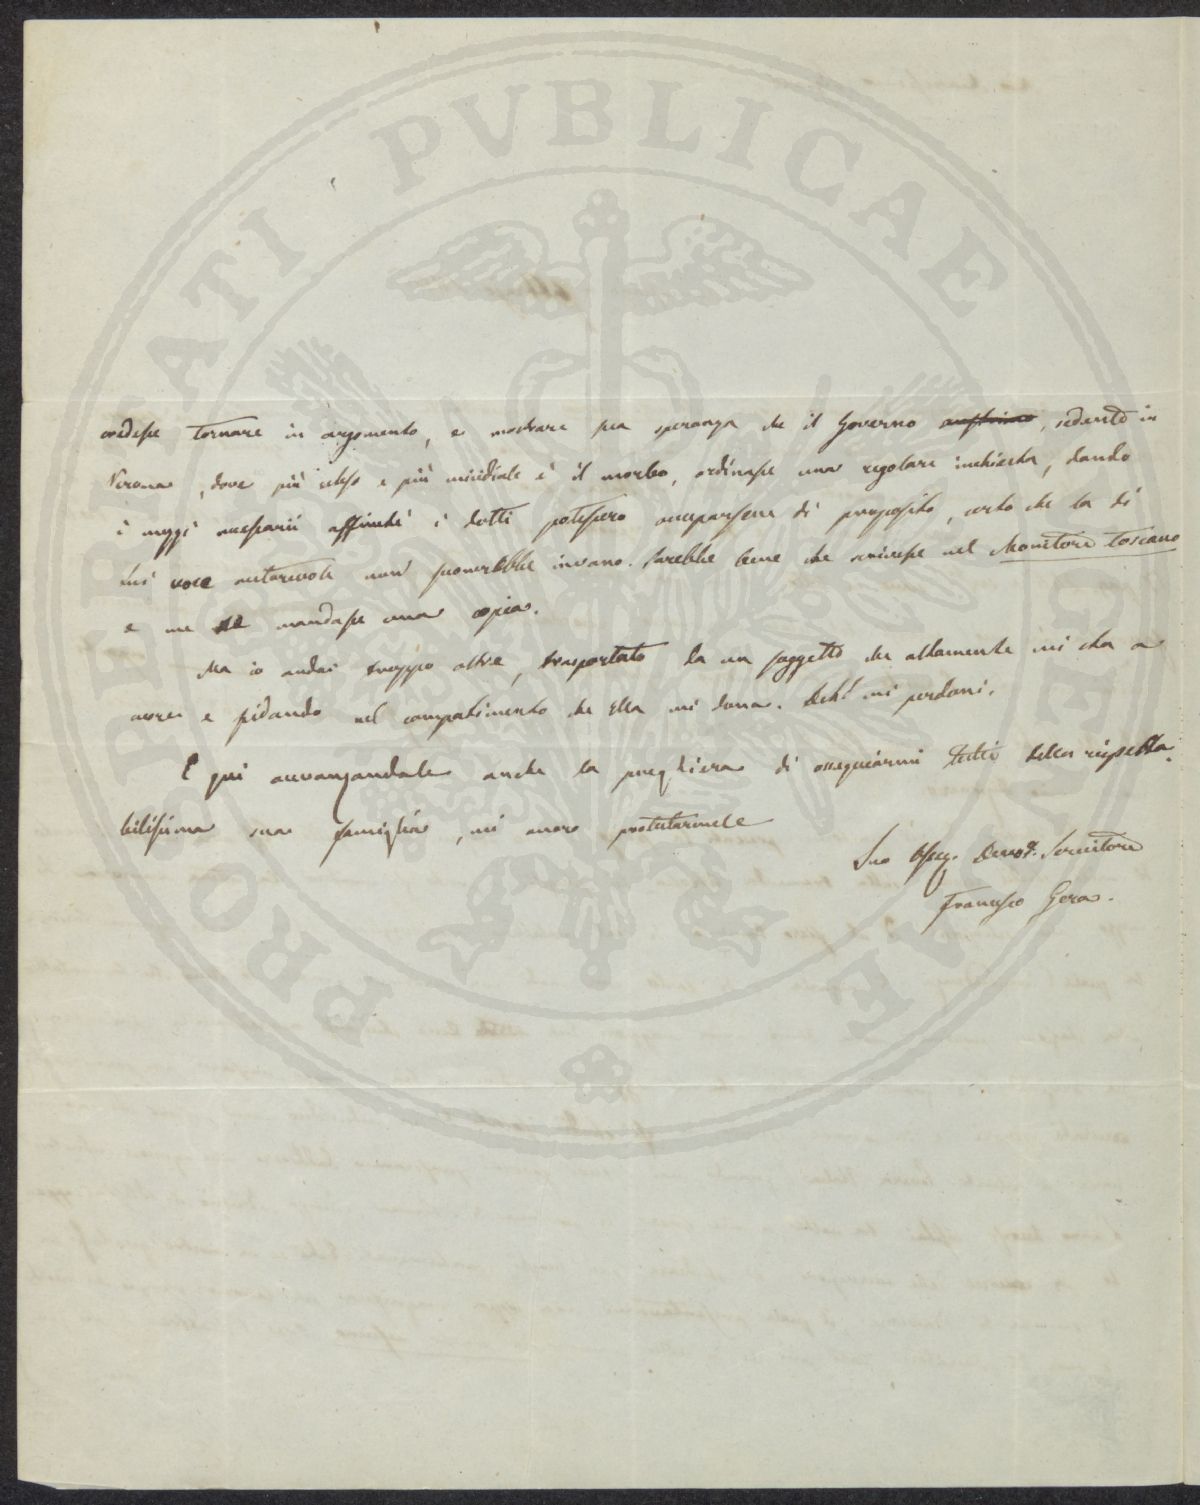 PROSPERITATI PUBLICAE AUGENDAE
credesse tornare in argomento, e mostrare sua speranza che il Governo austriaco, sedente in
Verona, dove più esteso e più micidiale è il morbo, ordinasse una regolare inchiesta, dando
i mezzi necessarii affinché i dotti potessero occuparsene di proposito, certo che la di
lui voce autorevole non suonerebbe invano. Sarebbe bene che scrivesse nel Monitore Toscano
e me ne mandasse una copia.
Ma io andai troppo oltre, trasportato da un soggetto che altamente mi sta a
cuore e fidando nel compatimento che Ella mi dona. Deh! mi perdoni.
E qui avvanzandole anche la preghiera di ossequiarmi tutti della rispetta-
bilissima sua famiglia, mi onoro protestarmele
Suo Osseq. Devot. Servitore
Francesco Gera.